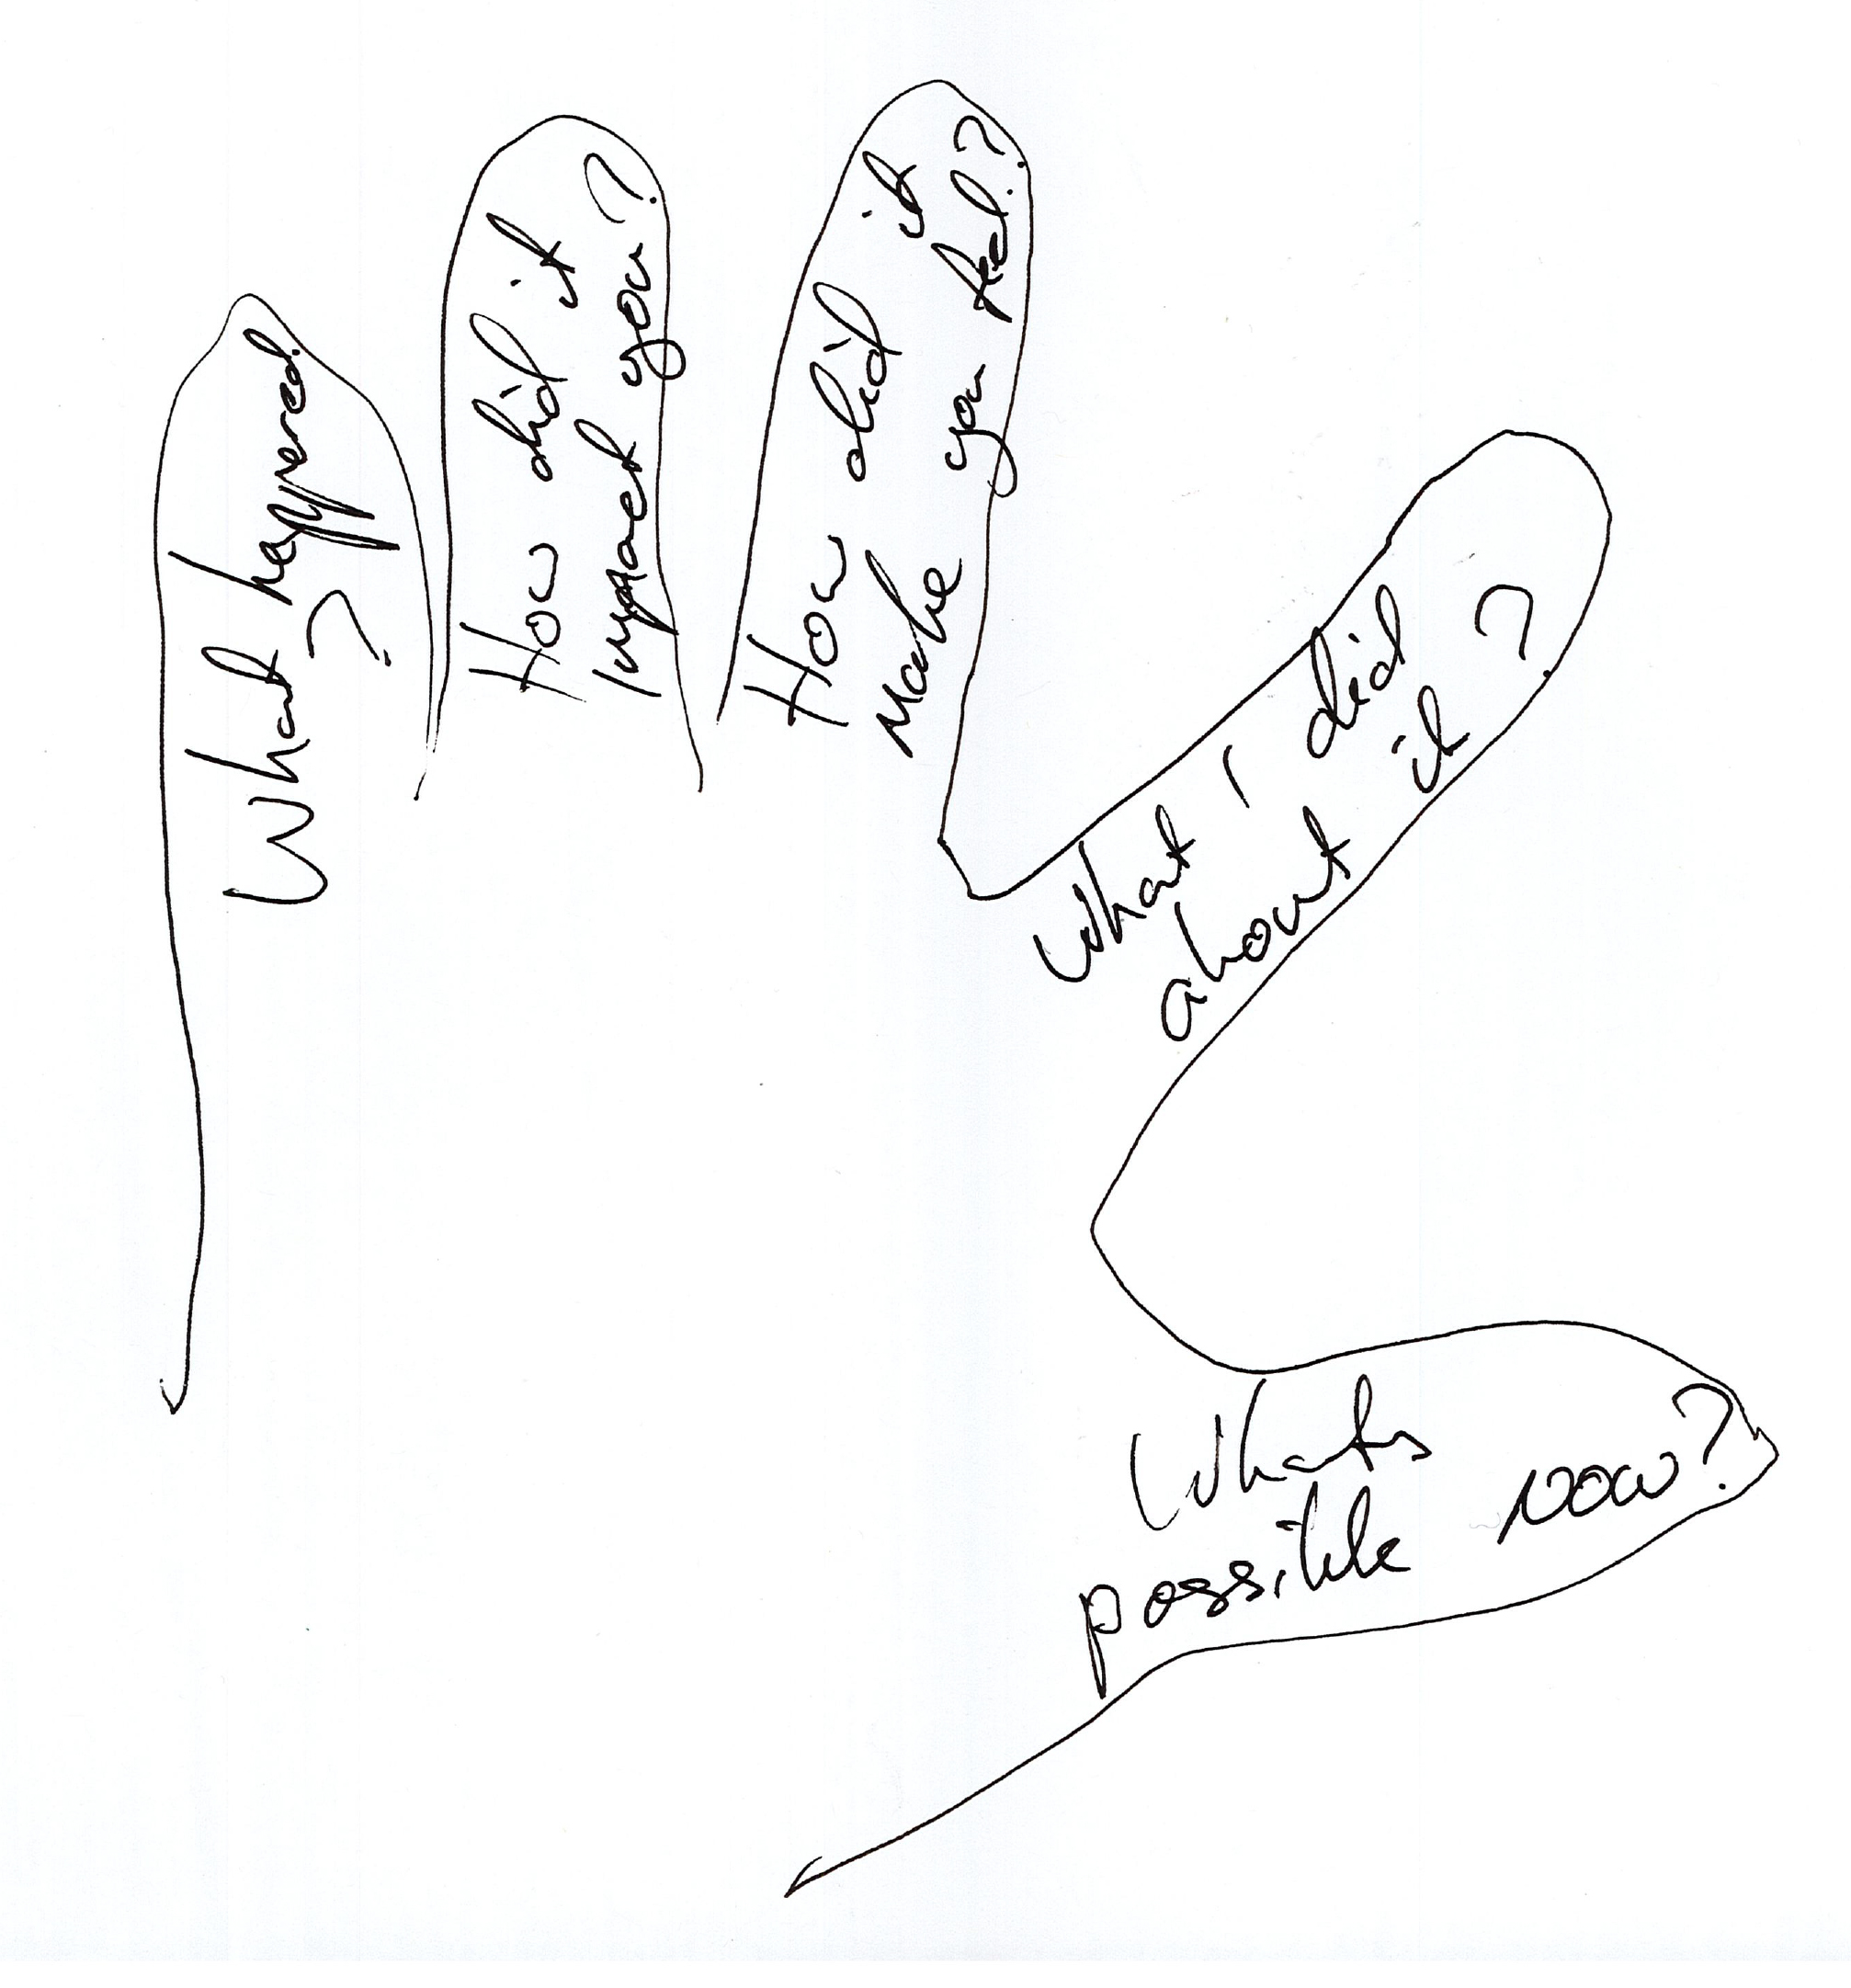 What happened
?
How did it
impact you?
How did it
Make you feel?
What I did
about it ?
Whats
possible now?